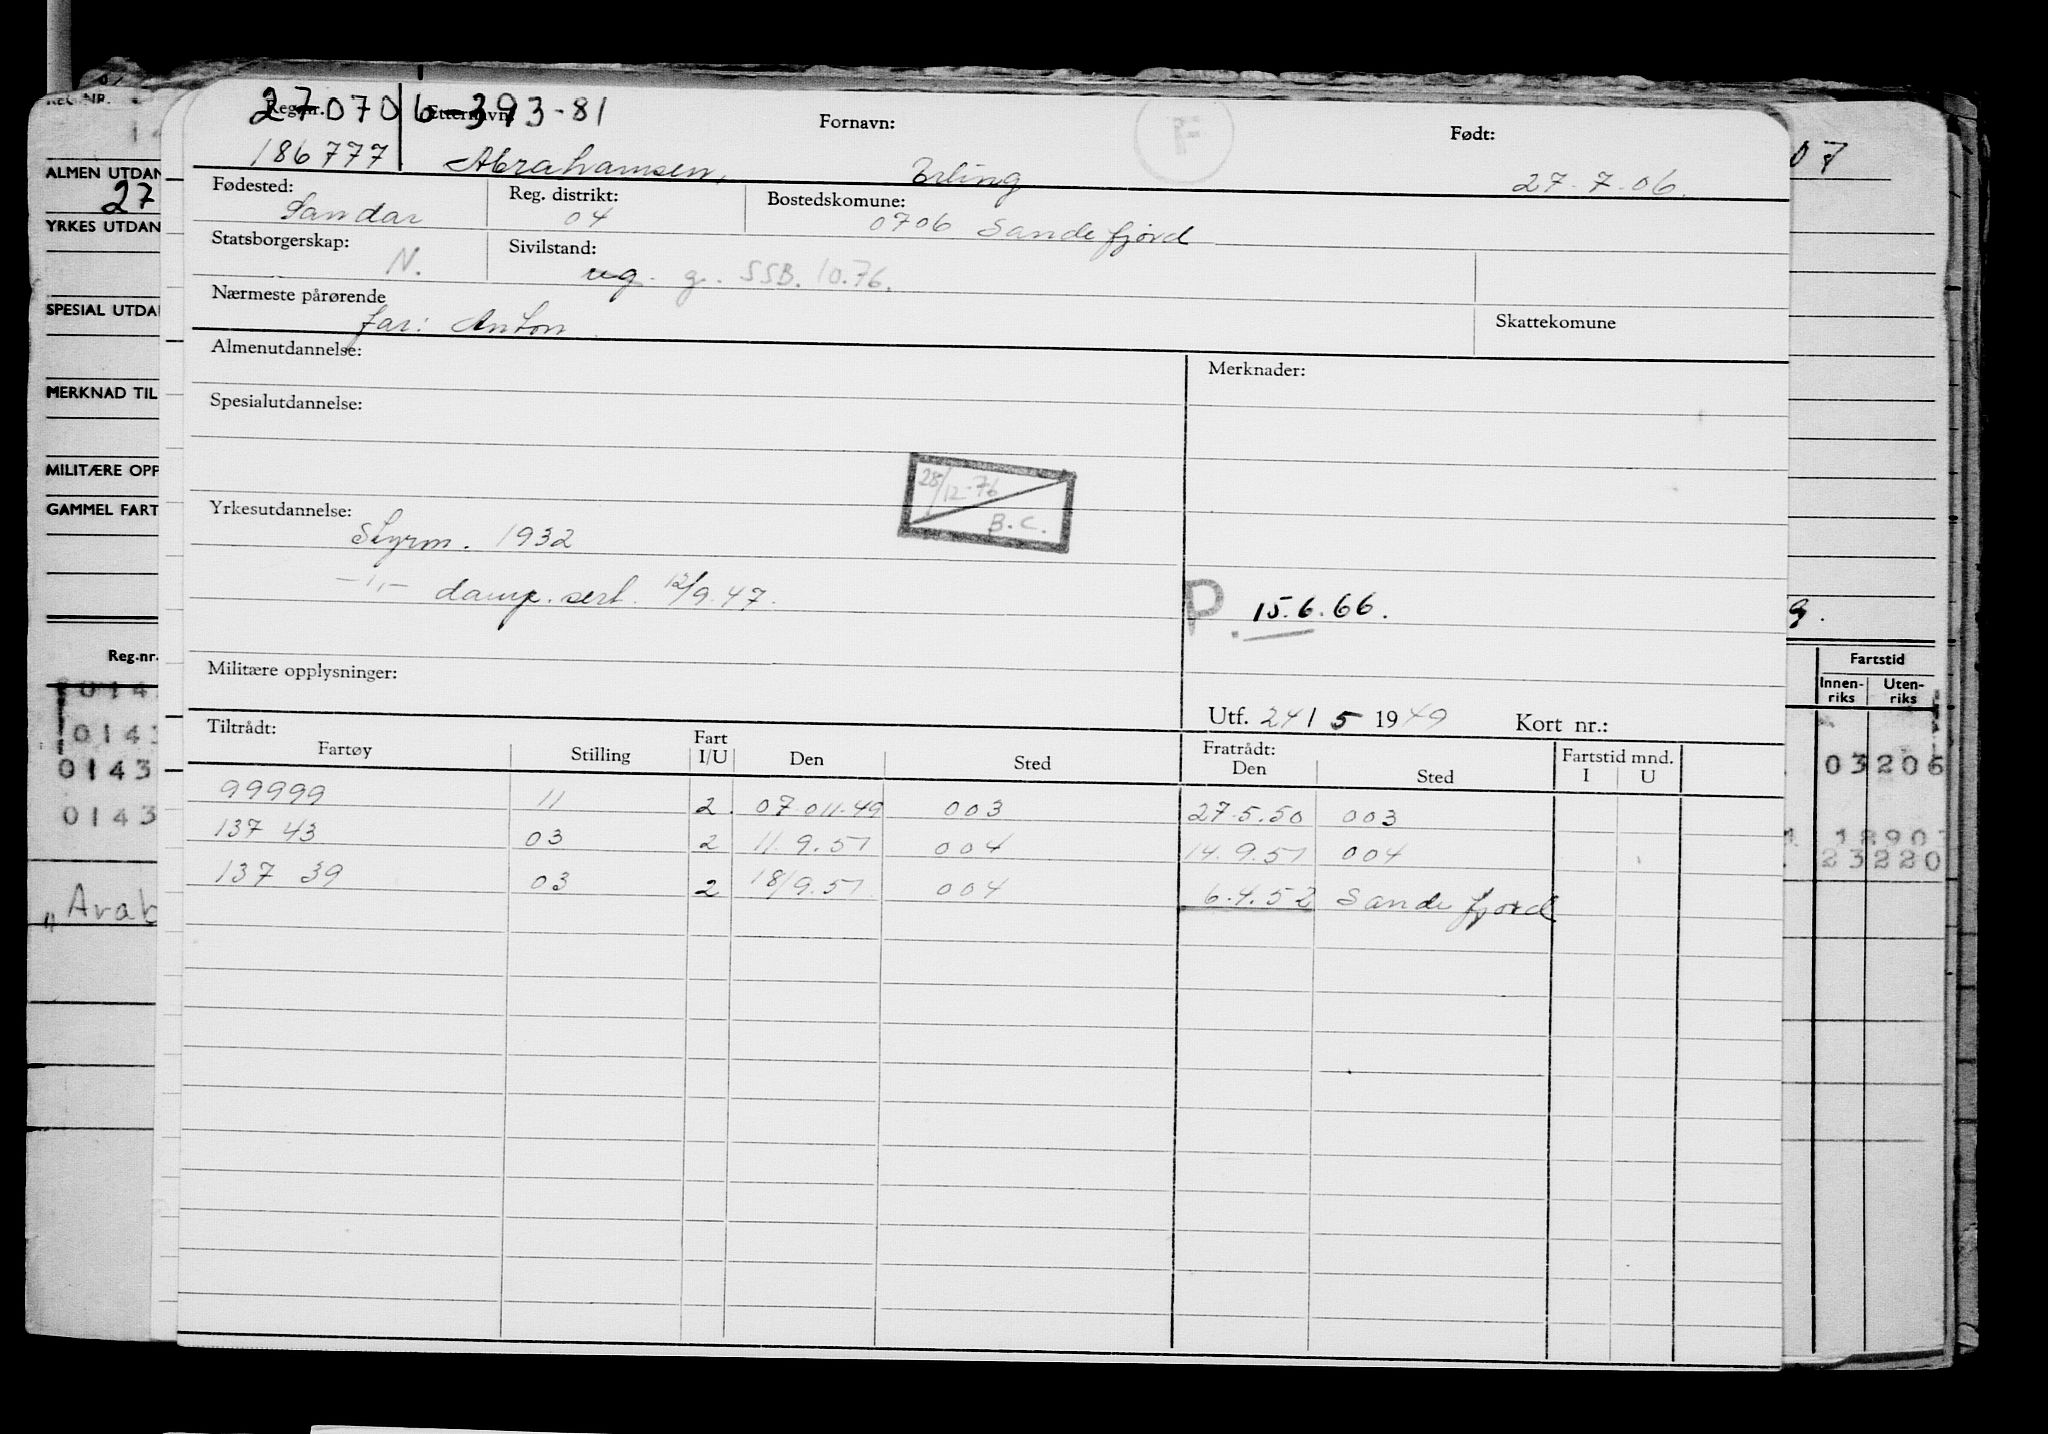 270706-393-81
Reg.nr. Etternavn: Fornavn: F Født:
186777 Abrahamsen, Erling 27-7-06.
Fødested: Reg. distrikt: Bostedskomune:
Sandar 04 0706 Sandefjord
Statsborgerskap: Sivilstand:
N. ug. g. SSB. 10.76.
Nærmeste pårørende Skattekomune
far: Anton
Almenutdannelse: Merknader:
Spesialutdannelse:
28/12-76 B.C.
Yrkesutdannelse:
Styrm. 1932
—"— damp. sert. 12/9.47.
P. 15.6.66.
Militære opplysninger:
Utf. 24/5 1949 Kort nr.:
Tiltrådt: Fratrådt: Fartstid mnd.
Fartøy Stilling Fart I/U Den Sted Den Sted I U
99999 11 2 07 011.49 003 27.5.50 003
137 43 03 2 11.9.51 004 14.9.51 004
137 39 03 2 18/9.51 004 6.4.52 Sandefjord
REG.NR.
ALMEN UTDAN
27
YRKES UTDAN
SPESIAL UTDA
MERKNAD TIL
MILITÆRE OPP
GAMMEL FART
Reg.nr.
0143
0143
0143
0143
"Arab
07
9.
Fartstid
Innen-riks Uten-riks
03206
18907
23220